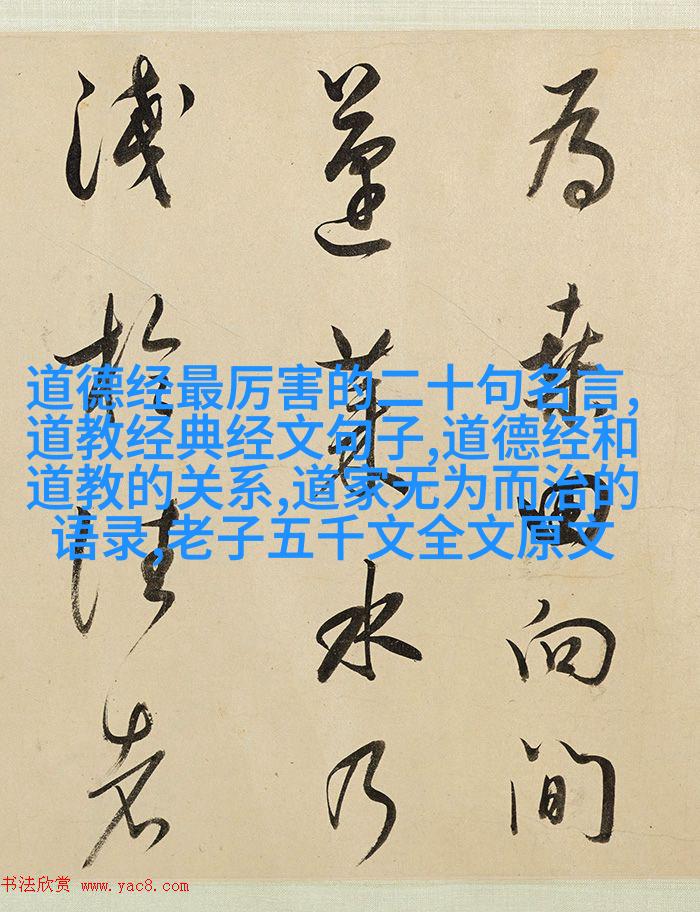 為桑田向間
蓬萊水乃
淺於往者
道德经最厉害的二十句名言,
道教经典经文句子,道德经和
道教的关系,道家无为而治的
语录,老子五千文全文原文
书法欣赏 www.yac8.com